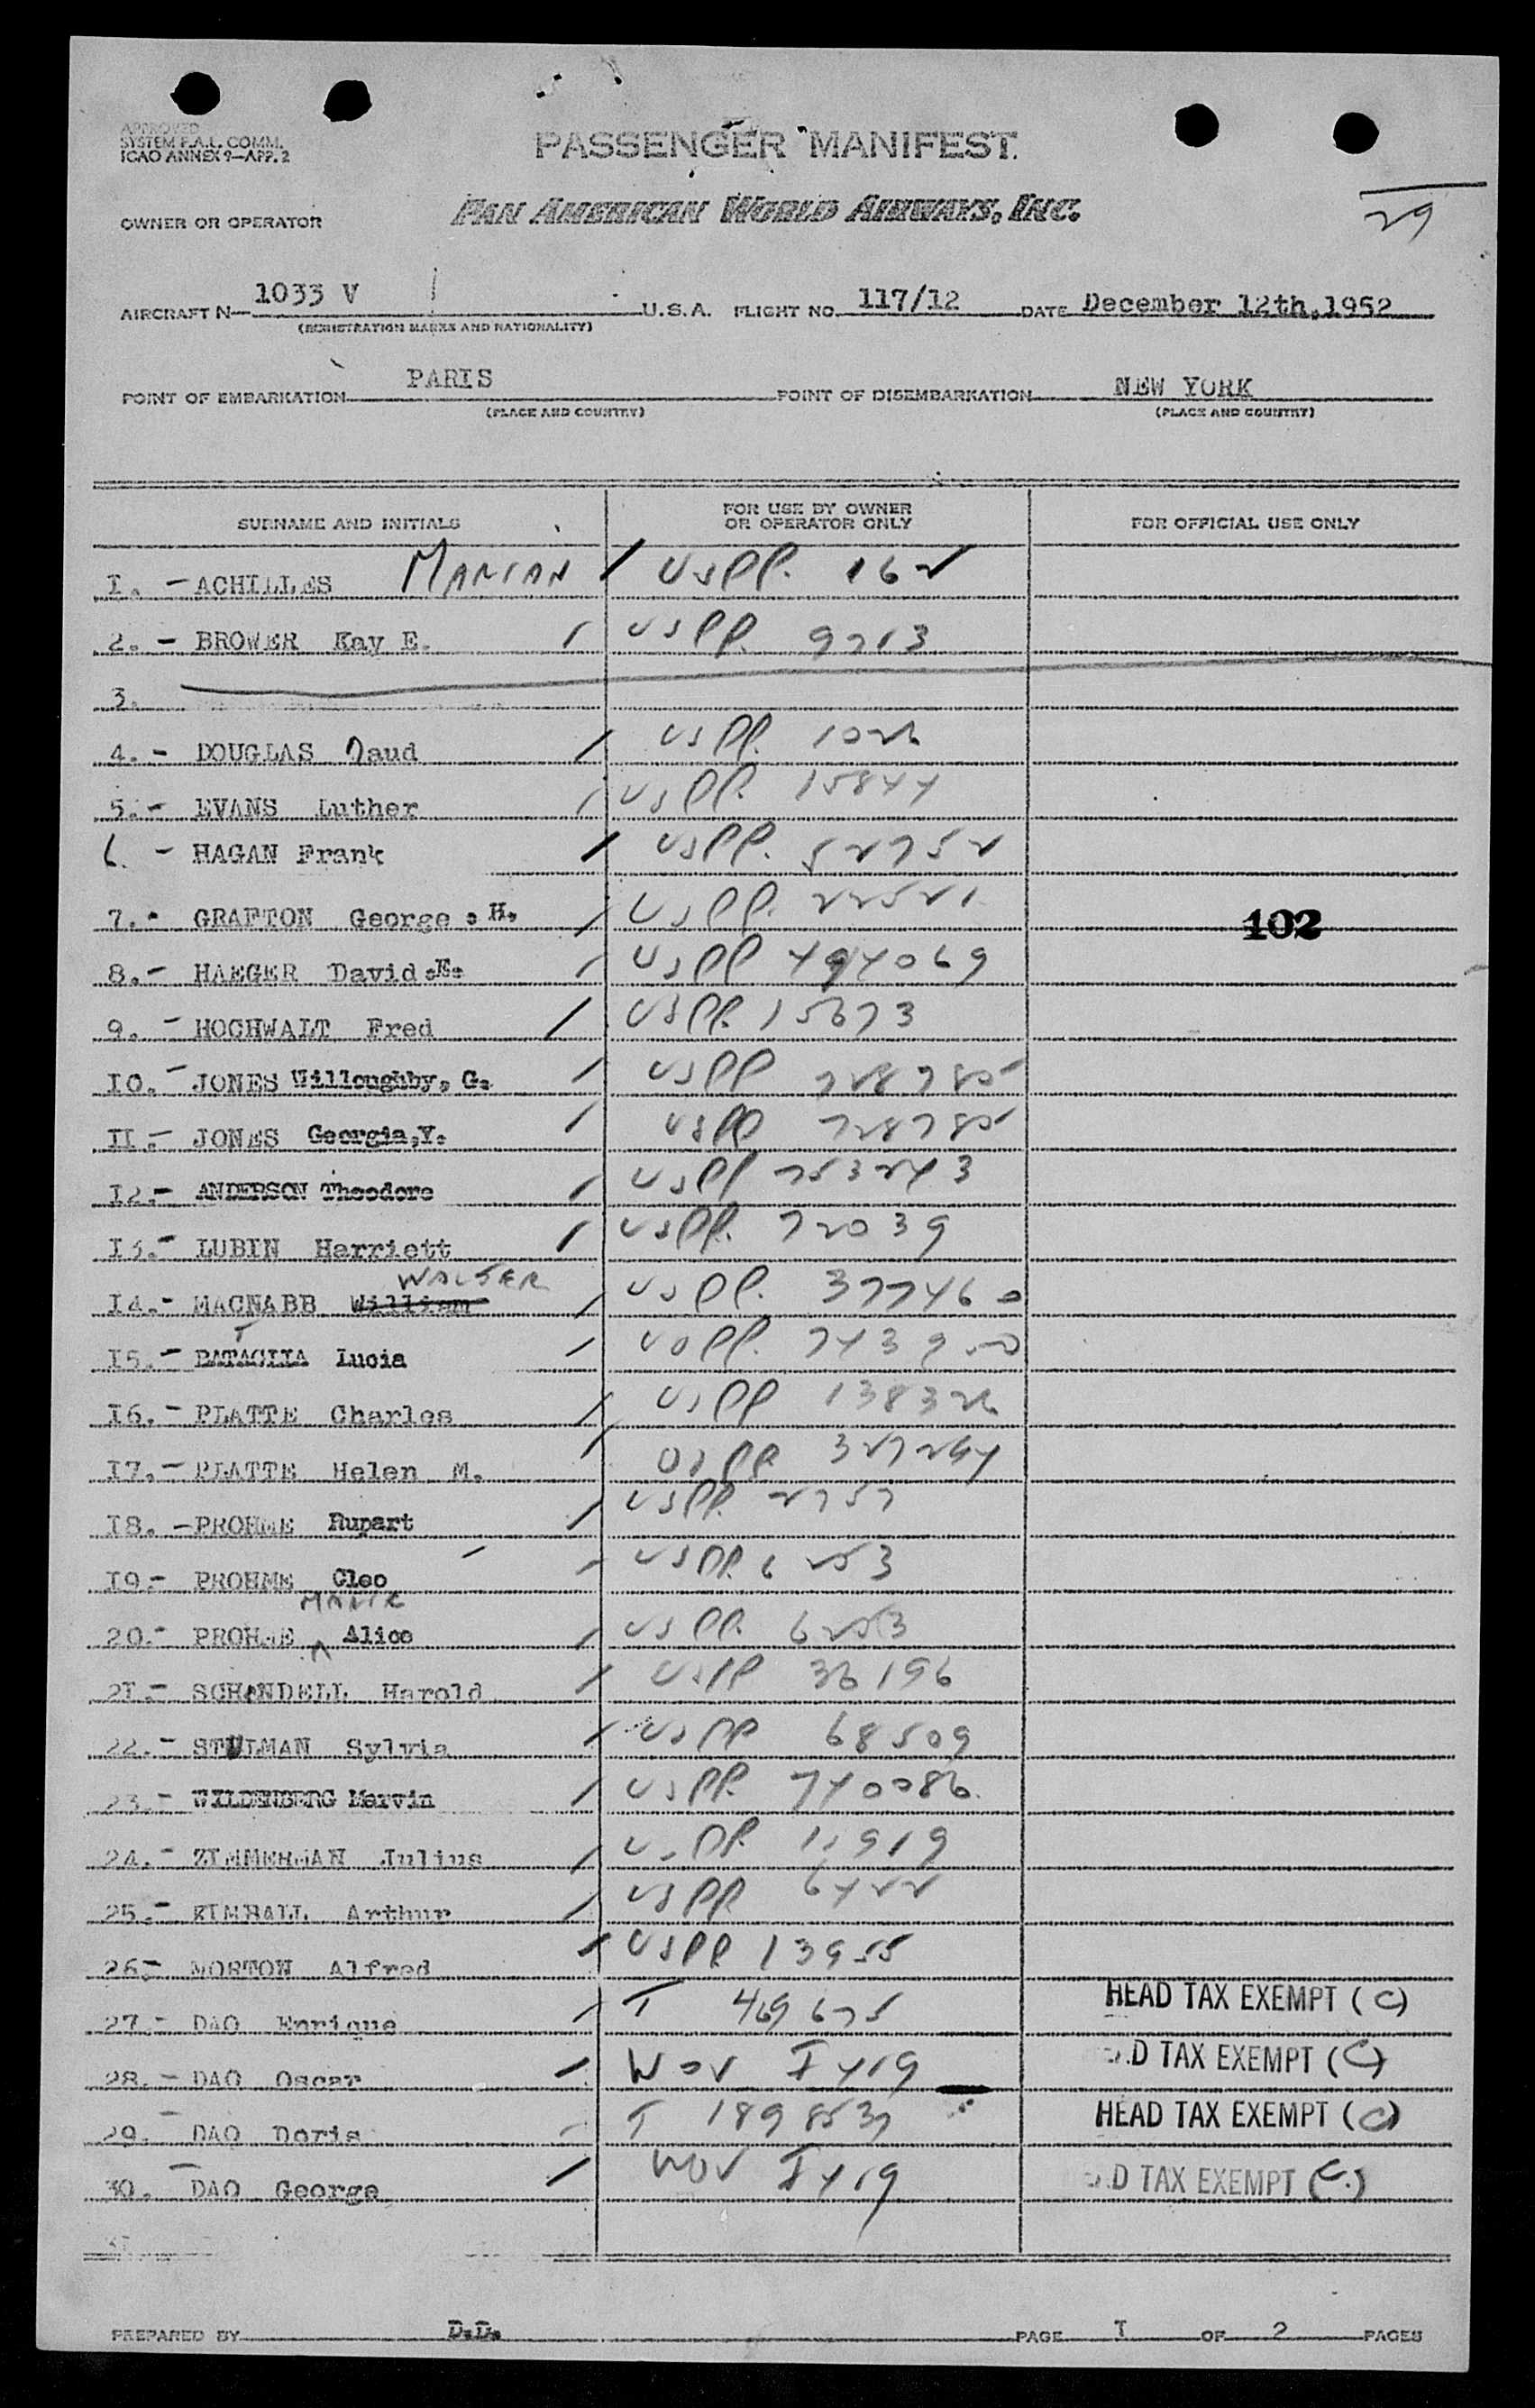 APPROVED
SYSTEM F.A.L. COMM.
ICAO ANNEX 9—APP. 2
PASSENGER MANIFEST
OWNER OR OPERATOR PAN AMERICAN WORLD AIRWAYS, INC.
29
AIRCRAFT N— 1033 V U.S.A. FLIGHT NO. 117/12 DATE December 12th,1952
(REGISTRATION MARKS AND NATIONALITY)
POINT OF EMBARKATION PARIS POINT OF DISEMBARKATION NEW YORK
(PLACE AND COUNTRY) (PLACE AND COUNTRY)
SURNAME AND INITIALS FOR USE BY OWNER OR OPERATOR ONLY FOR OFFICIAL USE ONLY
I. - ACHILLES MARIAN / USPP. 162
2. - BROWER Kay E. / USPP. 9713
3.
4. - DOUGLAS aud / USPP.
5. - EVANS Luther / USPP. 15844
6. - HAGAN Frank / USPP. 52752
7. - GRAFTON George . H. / USPP. 22521 102
8. - HAEGER David .E. / USPP 494069
9. - HOCHWALT Fred / USPP. 15673
I0. - JONES Willoughby, G. / USPP 728780
II. - JONES Georgia,Y. / USPP 728780
I2. - ANDERSON Theodore / USPP 753243
I3. - LUBIN Harriett / USPP. 72039
WALTER
I4. - MACNABB William / USPP. 377460
I5. - BATAGLIA Lucia / USPP.
I6. - PLATTE Charles / USPP
I7. - PLATTE Helen M. / USPP 327264
I8. - PROHME Rupart / USPP. 2757
I9. - PROHME Cleo / USPP. 6253
MARIE
20. - PROHME ^ Alice / USPP. 6253
2I. - SCHANDELL Harold / USPP 36196
22. - STULMAN Sylvia / USPP 68509
23. - WILDENBERG Marvin / USPP. 740086
24. - ZIMMERMAN Julius / USPP. 11919
25. - KIMBALL Arthur / USPP 6422
26 - MORTON Alfred / USPP 13955
27. - DAO Enrique / T 469675 HEAD TAX EXEMPT (C)
28. - DAO Oscar / WOV I419 .D TAX EXEMPT (C)
29. - DAO Doris / T 1898537 HEAD TAX EXEMPT (C)
30. - DAO George / WOV I419 .D TAX EXEMPT (C)
PREPARED BY D.D. PAGE I OF 2 PAGES